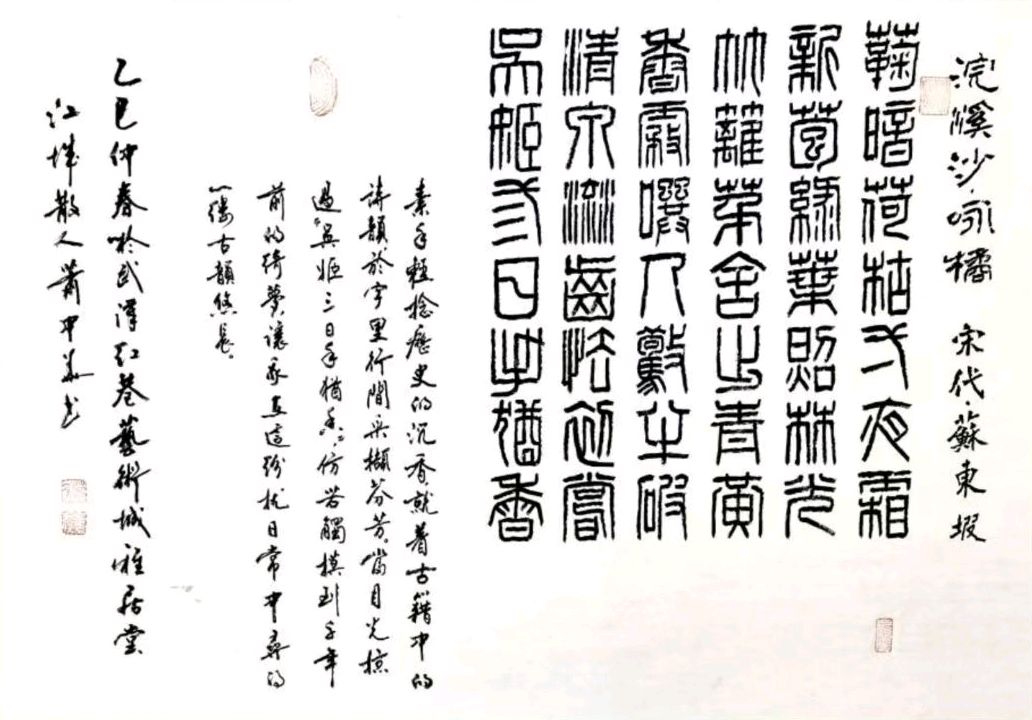 浣溪沙·咏橘 宋代·蘇東坡
鞠暗荷枯一夜霜
新苞綠葉照林光
竹籬茅舍出青黃
香霧噀人驚半破
清泉流齒怯初嘗
吳姬三日手猶香
素手輕捻歷史的沉香就着古籍中的
詩韻於字里行間采擷芬芳當目光掠
過“吳姬三日手猶香”仿若觸摸到千年
前的綺夢讓我在這紛擾日常中尋得
一縷古韻悠長。
乙巳仲春於武漢紅巷藝術城雅居堂
江城散人蕭中